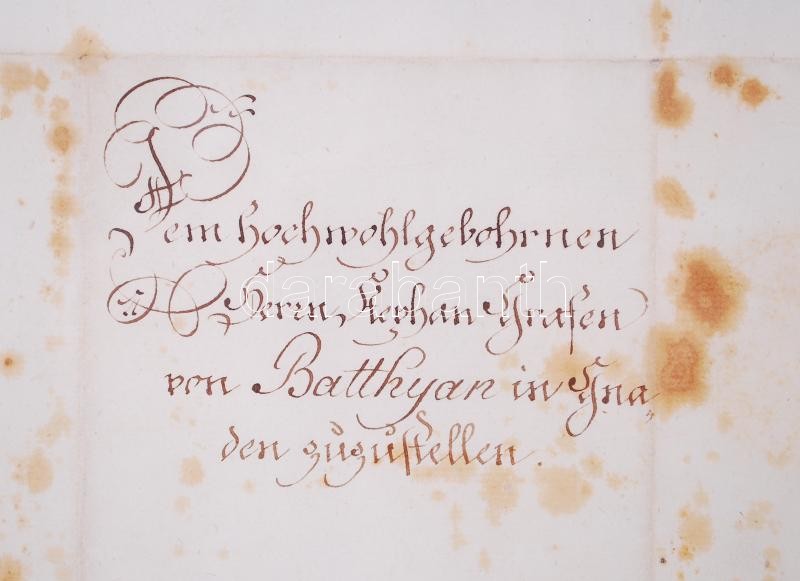 Dem Hochwohlgebohrnen
Herrn Stephan Grafen
von Batthyan in Gna„
den zuzustellen.
darabanth